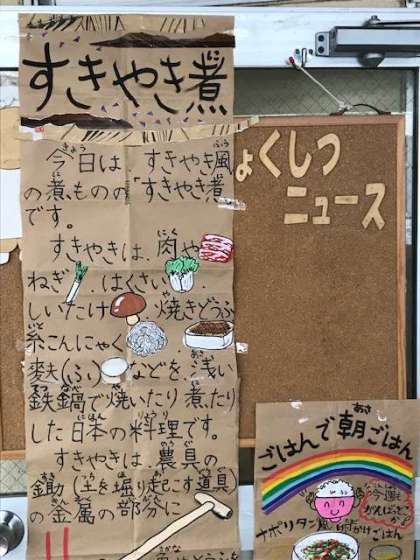 すきやき煮
今日は すきやき風
の煮ものの すきやき煮
です。
すきやきは、肉や
ねぎ、はくさい、
しいたけ、焼きどうふ
糸こんにゃく、
麩(ふ)などを、浅い
鉄鍋で焼いたり煮たり
した日本の料理です。
すきやきは、農具の
鋤(土を掘り起こす道具)
の金属の部分に
ょくしつ
ニュース
ごはんで朝ごはん
今週も
ナポリタン風